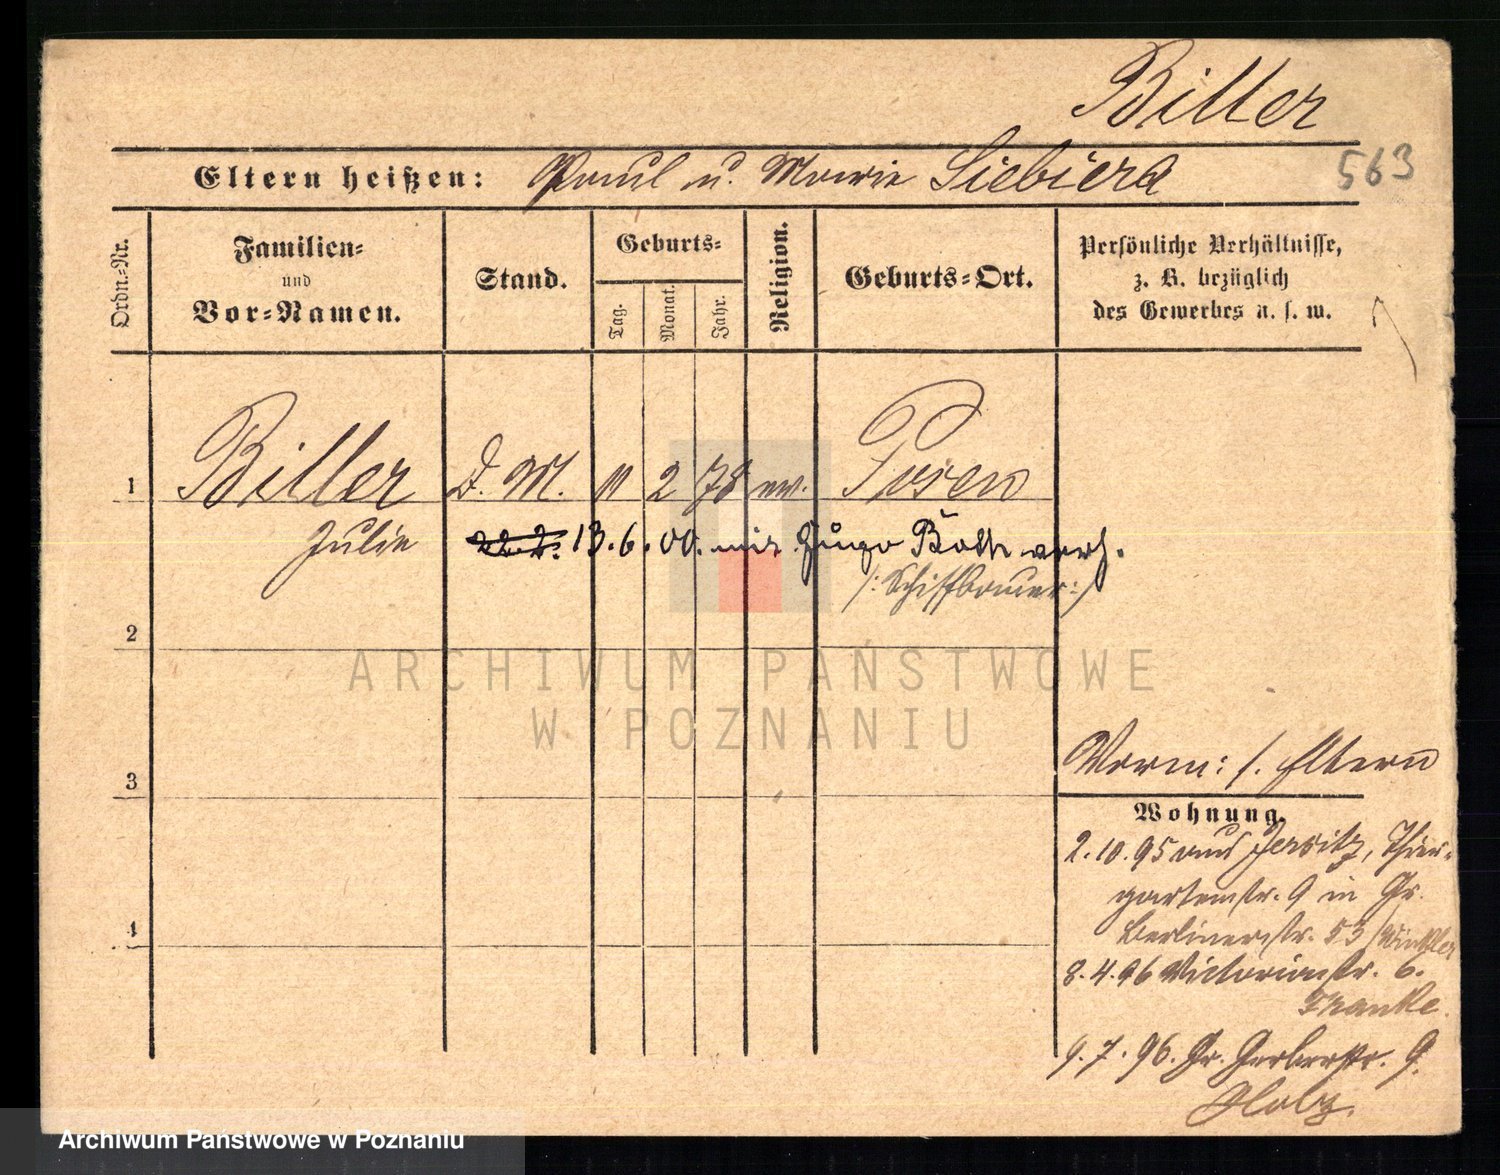 Biller
563
Eltern heißen: Paul u. Marie Siebiera
Ordn.-Nr.
Familien-
und
Vor-Namen.
Stand.
Geburts-
Tag.
Monat.
Jahr.
Religion.
Geburts-Ort.
Persönliche Verhältnisse,
z. B. bezüglich
des Gewerbes u. s. w.
1 Biller D. M. 11 2 78 ev. Posen
Julie 13.6.00. mit Hugo Both verh.
/: Schiffbauer :/
2
ARCHIWUM PAŃSTWOWE
W POZNANIU
3
Vorm: s. Eltern
Wohnung.
2.10.95 aus Jersitz, Thier-
gartenstr. 9 in Gr.
Berlinerstr. 53 /Winkler
4
8.4.96 Victoriastr. 6.
Franke.
9.7.96. Gr. Gerberstr. 9.
Holz.
Archiwum Państwowe w Poznaniu